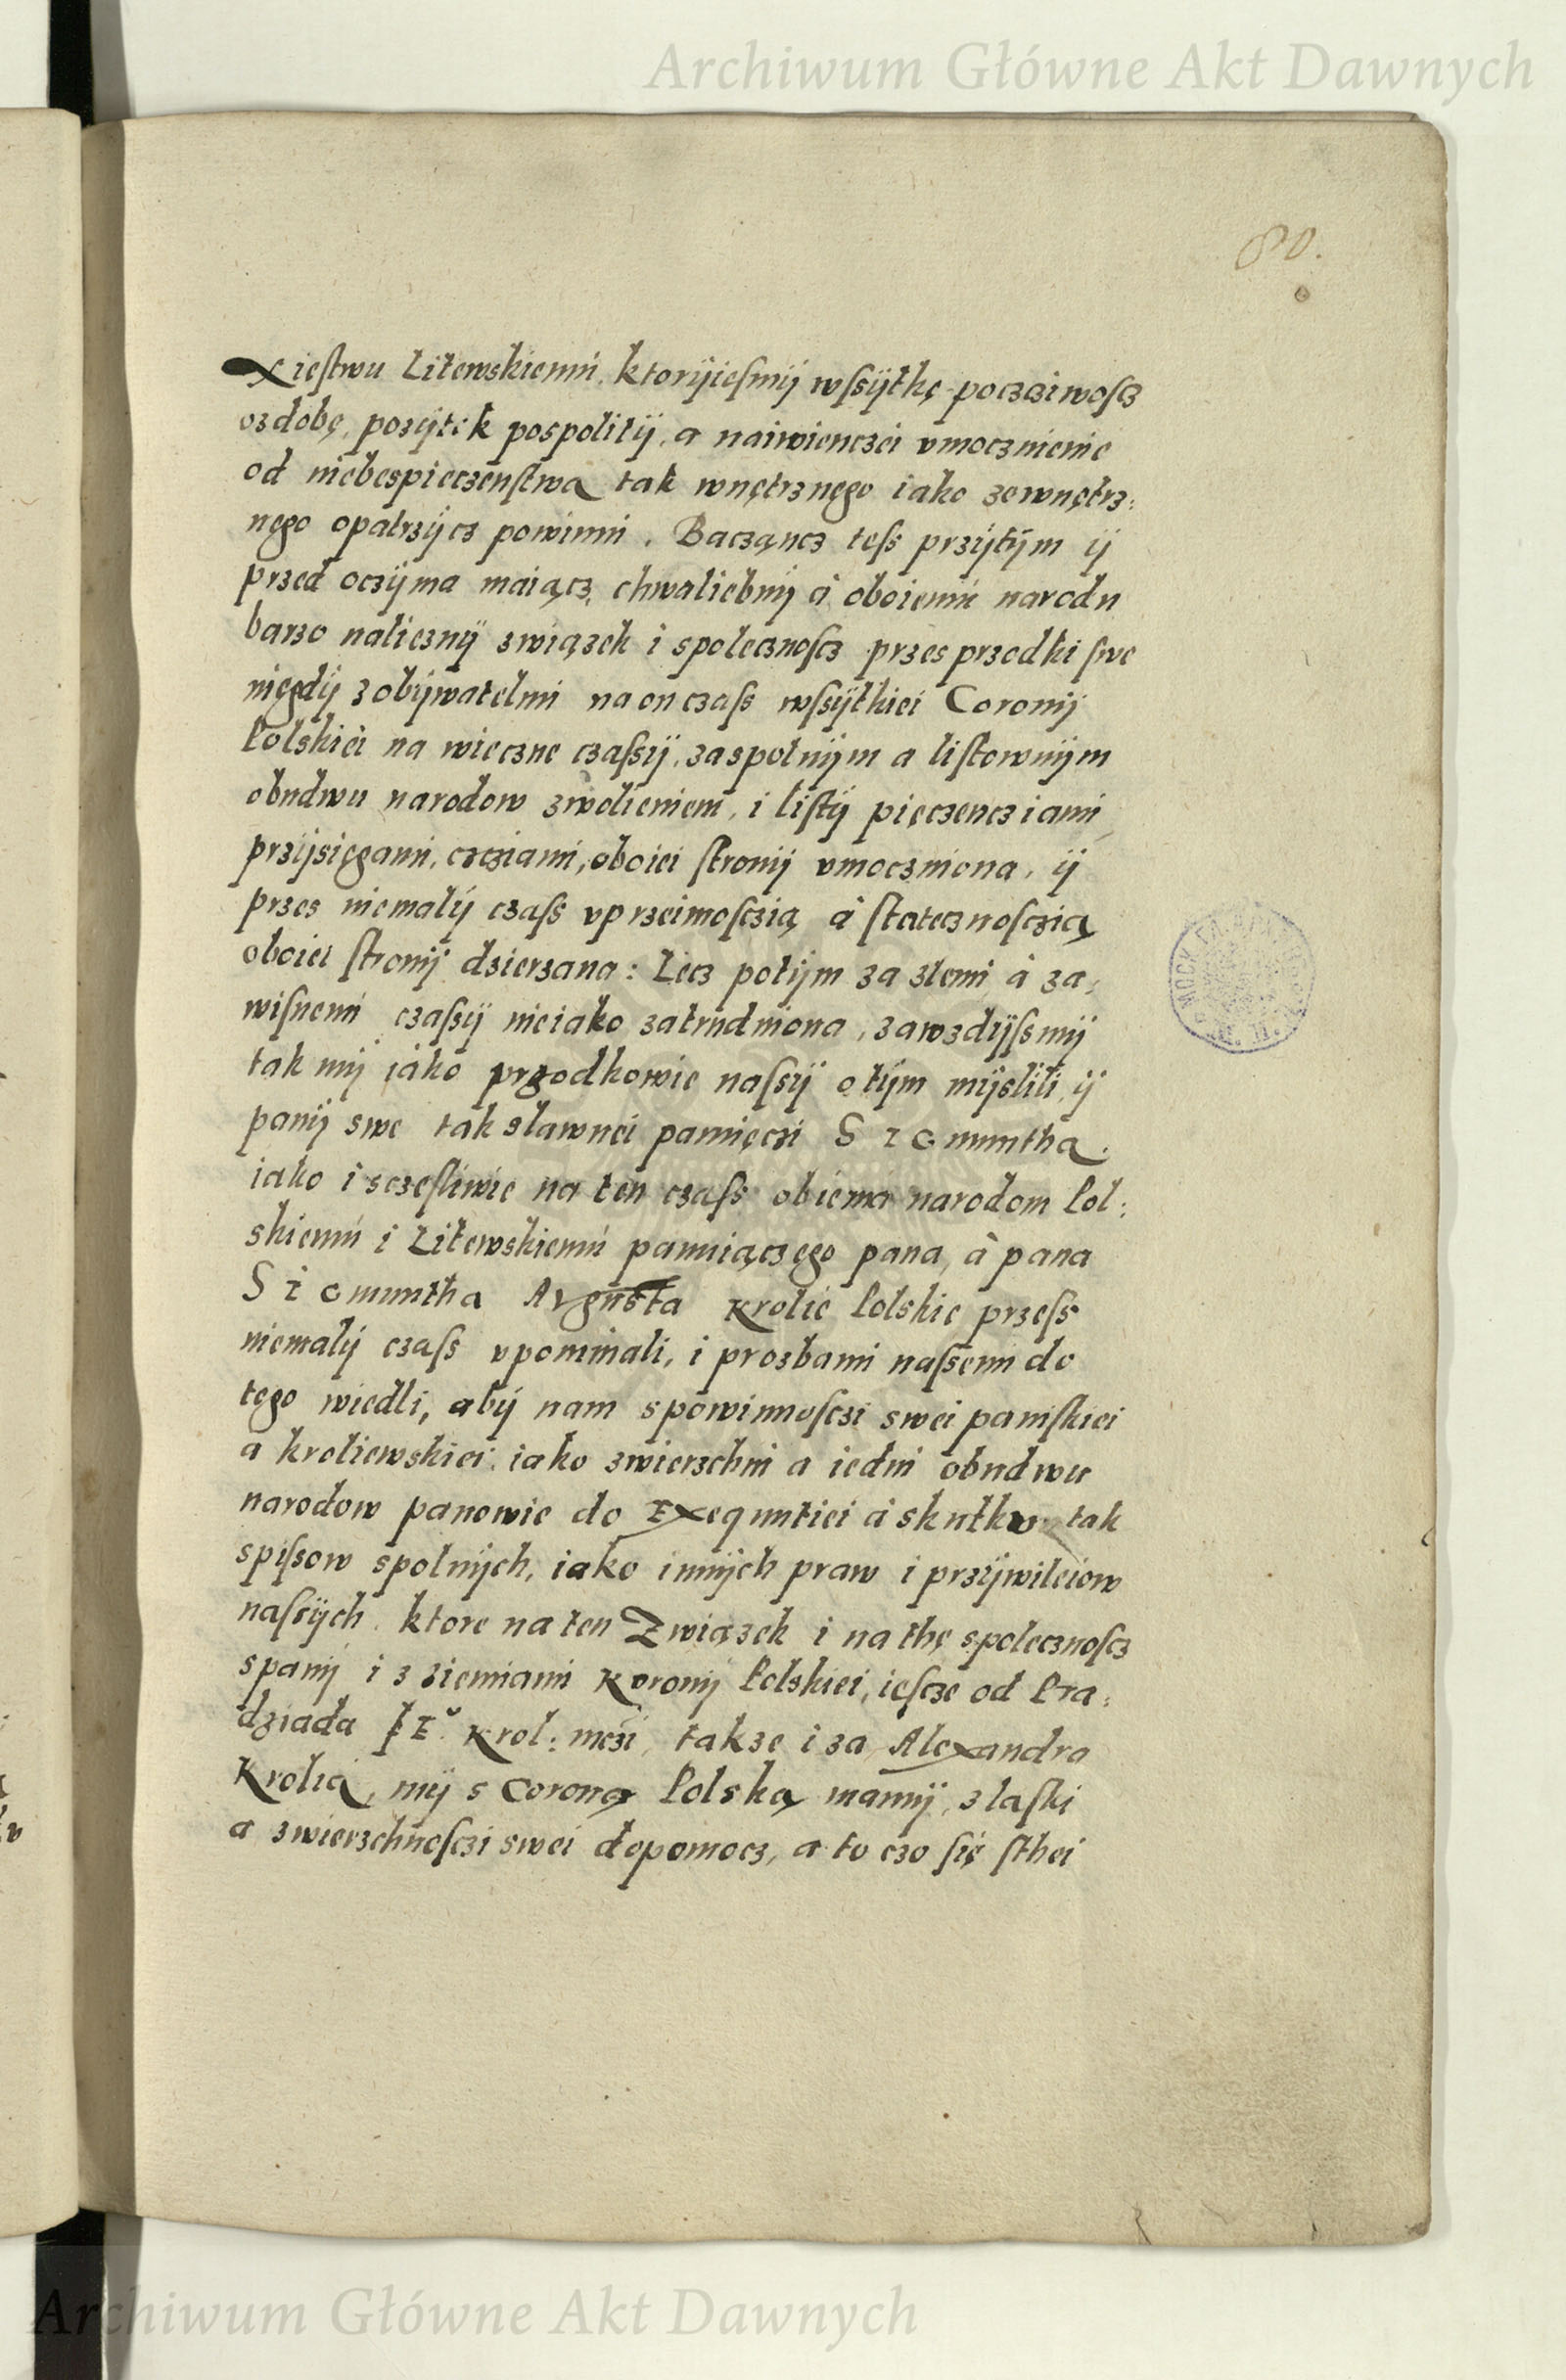 Archiwum Główne Akt Dawnych
80.
Xiestwu Litewskiemu, ktoryiesmy wssytkę poczciwoscz
ozdobę, pozytek pospolity, a naiwienczei vmocznienie
od niebespieczenstwa tak wnętrznego iako zewnętrz:
nego opatrzycz powinni. Bacząncz tess przytym y
przed oczyma maiącz, chwaliebny à oboiemu narodu
barzo naliezny związek i spolecznoscz przes przodki swe
niegdy z obywatelmi na on czass wssytkiei Corony
Polskiei na wieczne czassy, zaspolnym a listownym
obudwu narodow zwolieniem, i listy pięczencziami
przysięgami, czcziami, oboiei strony vmoczniona, y
przes niemaly czass vprzeimosczią à statecznosczią
oboiei strony dzierzana: Lecz potym za zlemi à za:
wisnemi czassy nieiako zatrudniona, zawzdyssmy
tak my iako przodkowie nassy o tym myslili, y
pany swe tak slawnei pamięczi SIGmuntha.
iako i sczesliwie na ten czass obiema narodom Pol:
skiemu i Litewskiemu panuiączego pana, à pana
SIGmuntha Avgusta Krolie Polskie przess
niemaly czass vpominali, i prozbami nassemi do
tego wiedli, aby nam spowinnosczi swei panskiei
a kroliewskiei, iako zwierzchni a iedni obudwu
narodow panowie do Exequutiei à skutku tak
spissow spolnych, iako innych praw i przywileiow
nassych, ktore na ten Związek i na thę spolecznoscz
spany i z ziemiami Korony Polskiei, iescze od Pra:
dziada Krol: mczi, takze i za Alexandra
Krolia, my s Coroną Polską mamy, z laski
a zwierzchnosczi swei dopomocz, a to czo się sthei
Archiwum Główne Akt Dawnych